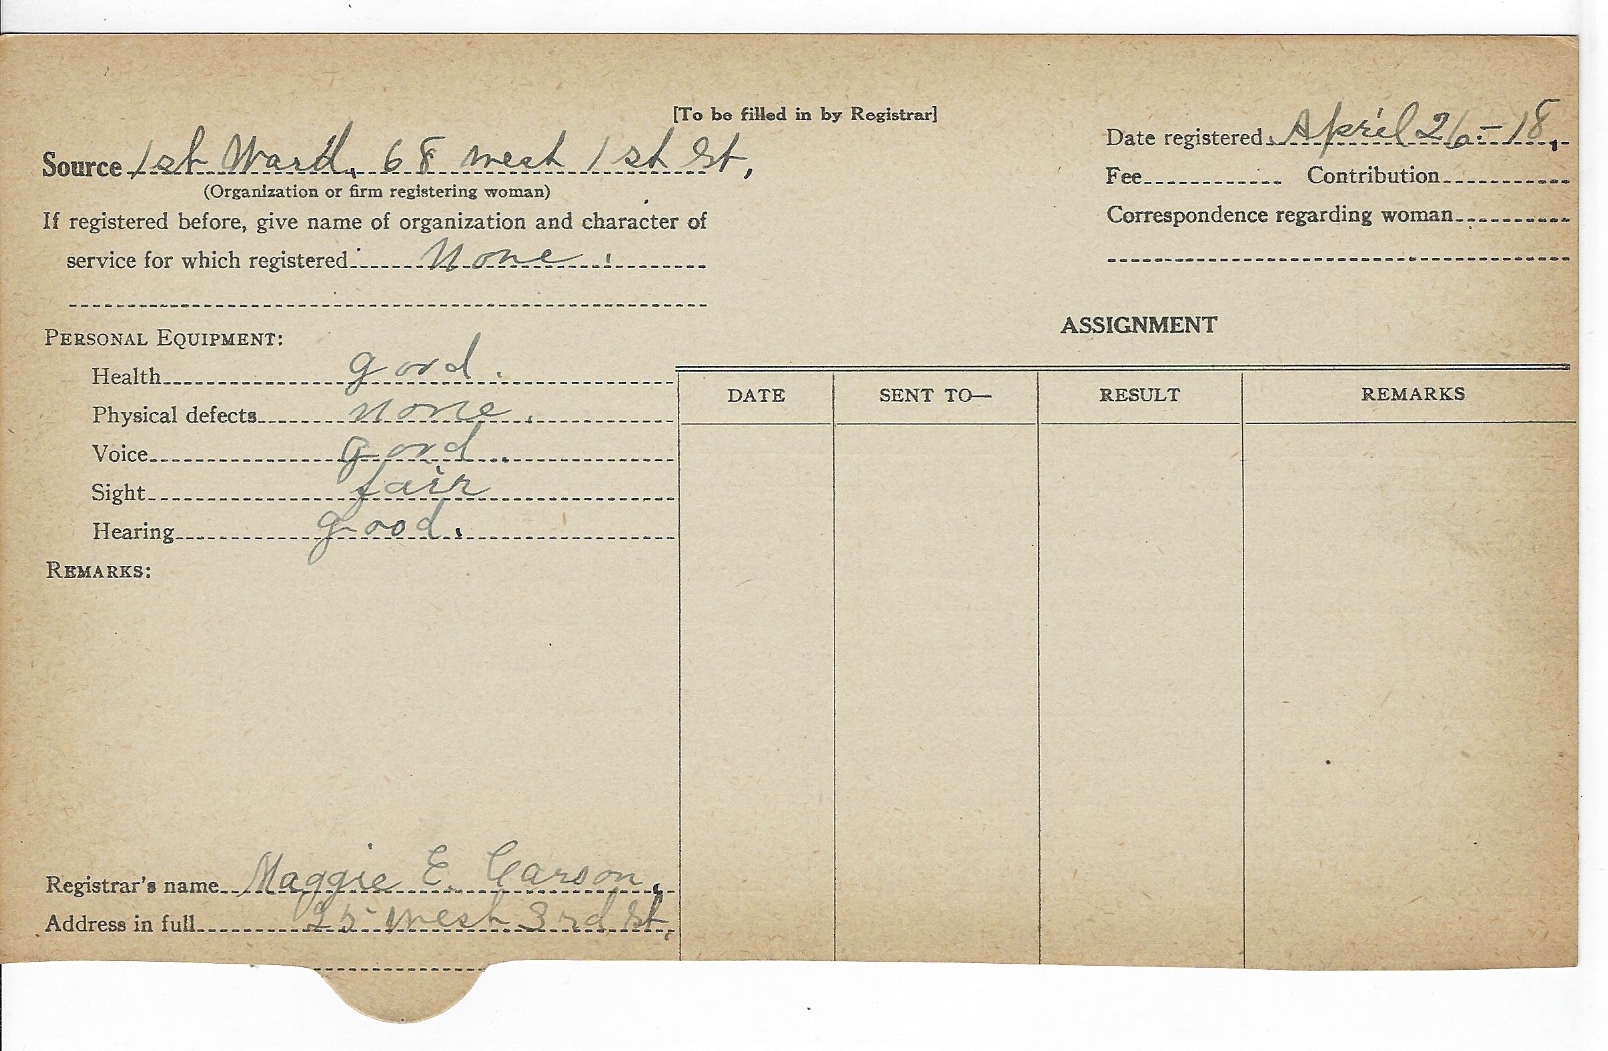 [To be filled in by Registrar]
Source 1st Ward, 68 West 1st St,
(Organization or firm registering woman)
If registered before, give name of organization and character of
service for which registered None.
Date registered April 26-18.
Fee Contribution
Correspondence regarding woman
PERSONAL EQUIPMENT:
Health good.
Physical defects none.
Voice good.
Sight fair
Hearing good.
REMARKS:
ASSIGNMENT
DATE SENT TO— RESULT REMARKS
Registrar's name Maggie E. Carson,
Address in full 25 West 3rd St,